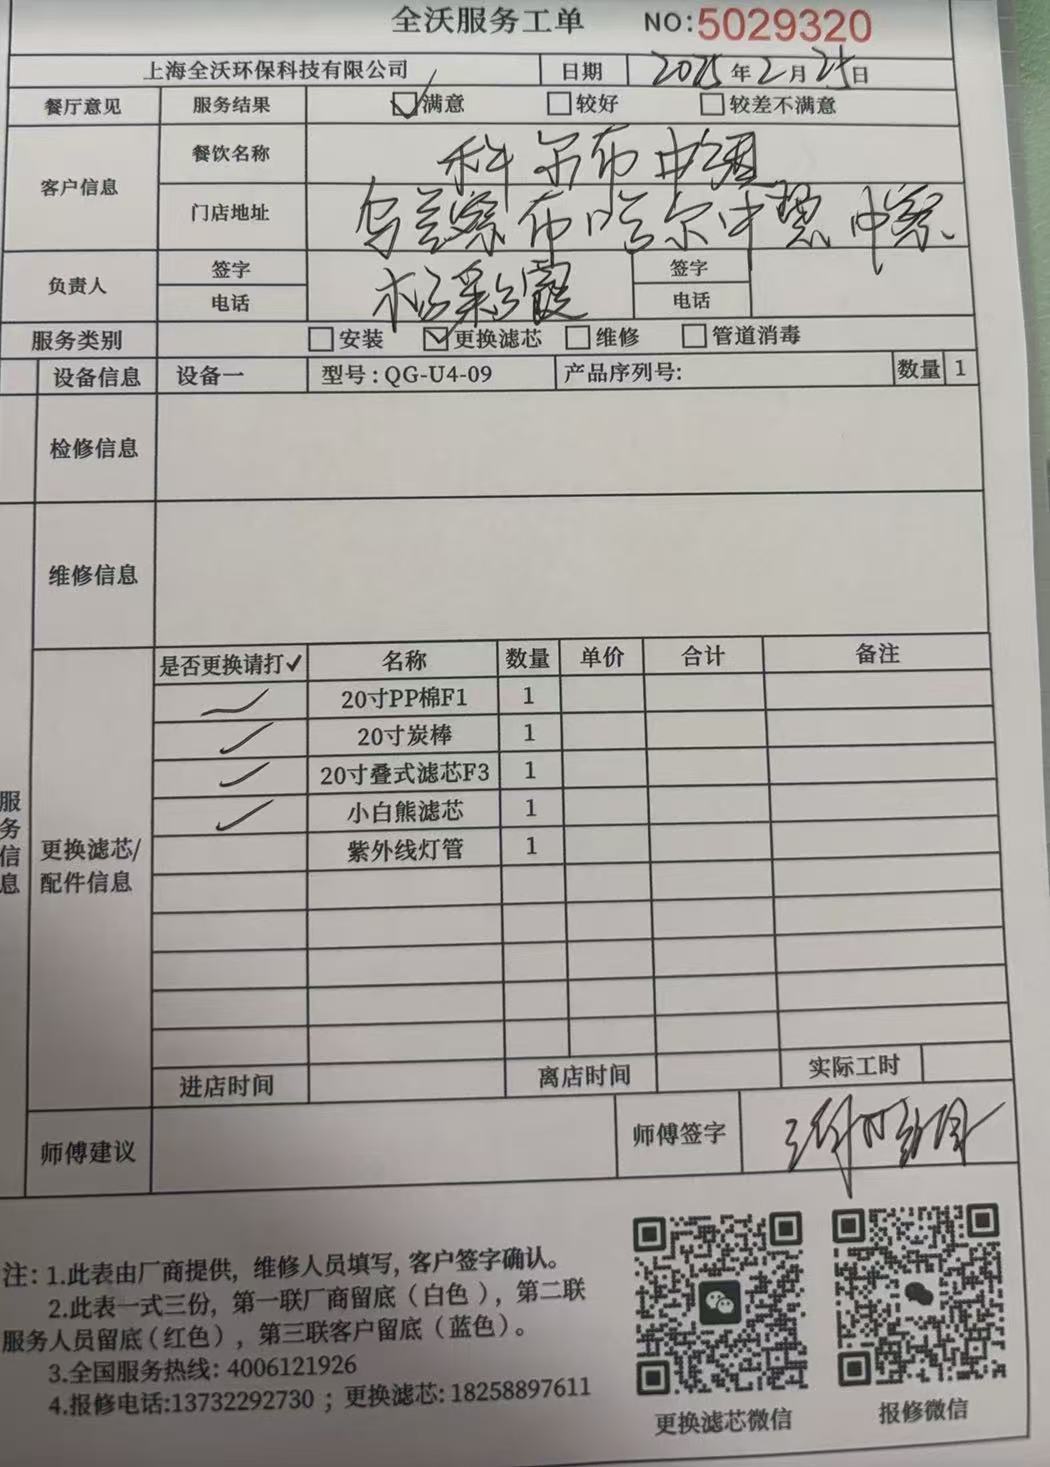 全沃服务工单 NO:5029320
上海全沃环保科技有限公司 日期 2025年2月25日
餐厅意见 服务结果 ☑满意 □较好 □较差不满意
客户信息 餐饮名称 科尔布中
门店地址 乌兰察布哈尔中 中察
负责人 签字 杨彩霞 签字
电话 电话
服务类别 □安装 ☑更换滤芯 □维修 □管道消毒
设备信息 设备一 型号:QG-U4-09 产品序列号: 数量 1
检修信息
维修信息
是否更换请打✓ 名称 数量 单价 合计 备注
✓ 20寸PP棉F1 1
✓ 20寸炭棒 1
✓ 20寸叠式滤芯F3 1
✓ 小白熊滤芯 1
紫外线灯管 1
服务信息
更换滤芯/
配件信息
进店时间 离店时间 实际工时
师傅建议 师傅签字
注:1.此表由厂商提供,维修人员填写,客户签字确认。
2.此表一式三份,第一联厂商留底(白色),第二联
服务人员留底(红色),第三联客户留底(蓝色)。
3.全国服务热线:4006121926
4.报修电话:13732292730;更换滤芯:18258897611
更换滤芯微信 报修微信